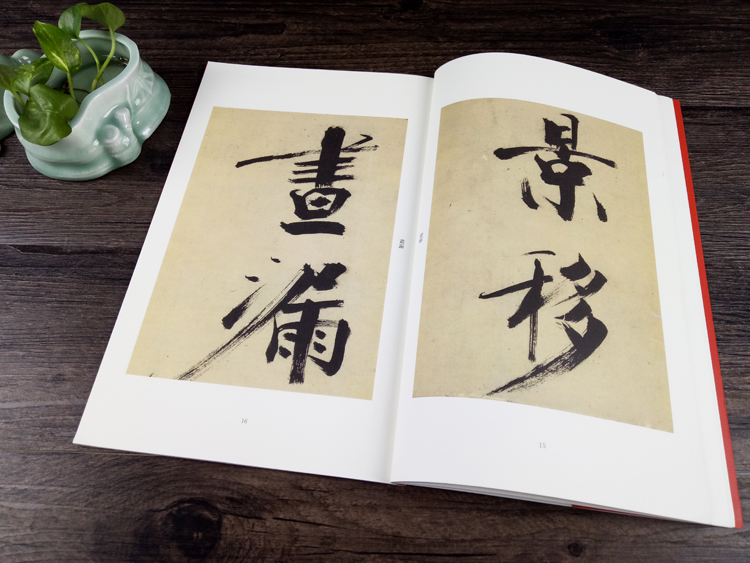 景移
15
晝漏
16